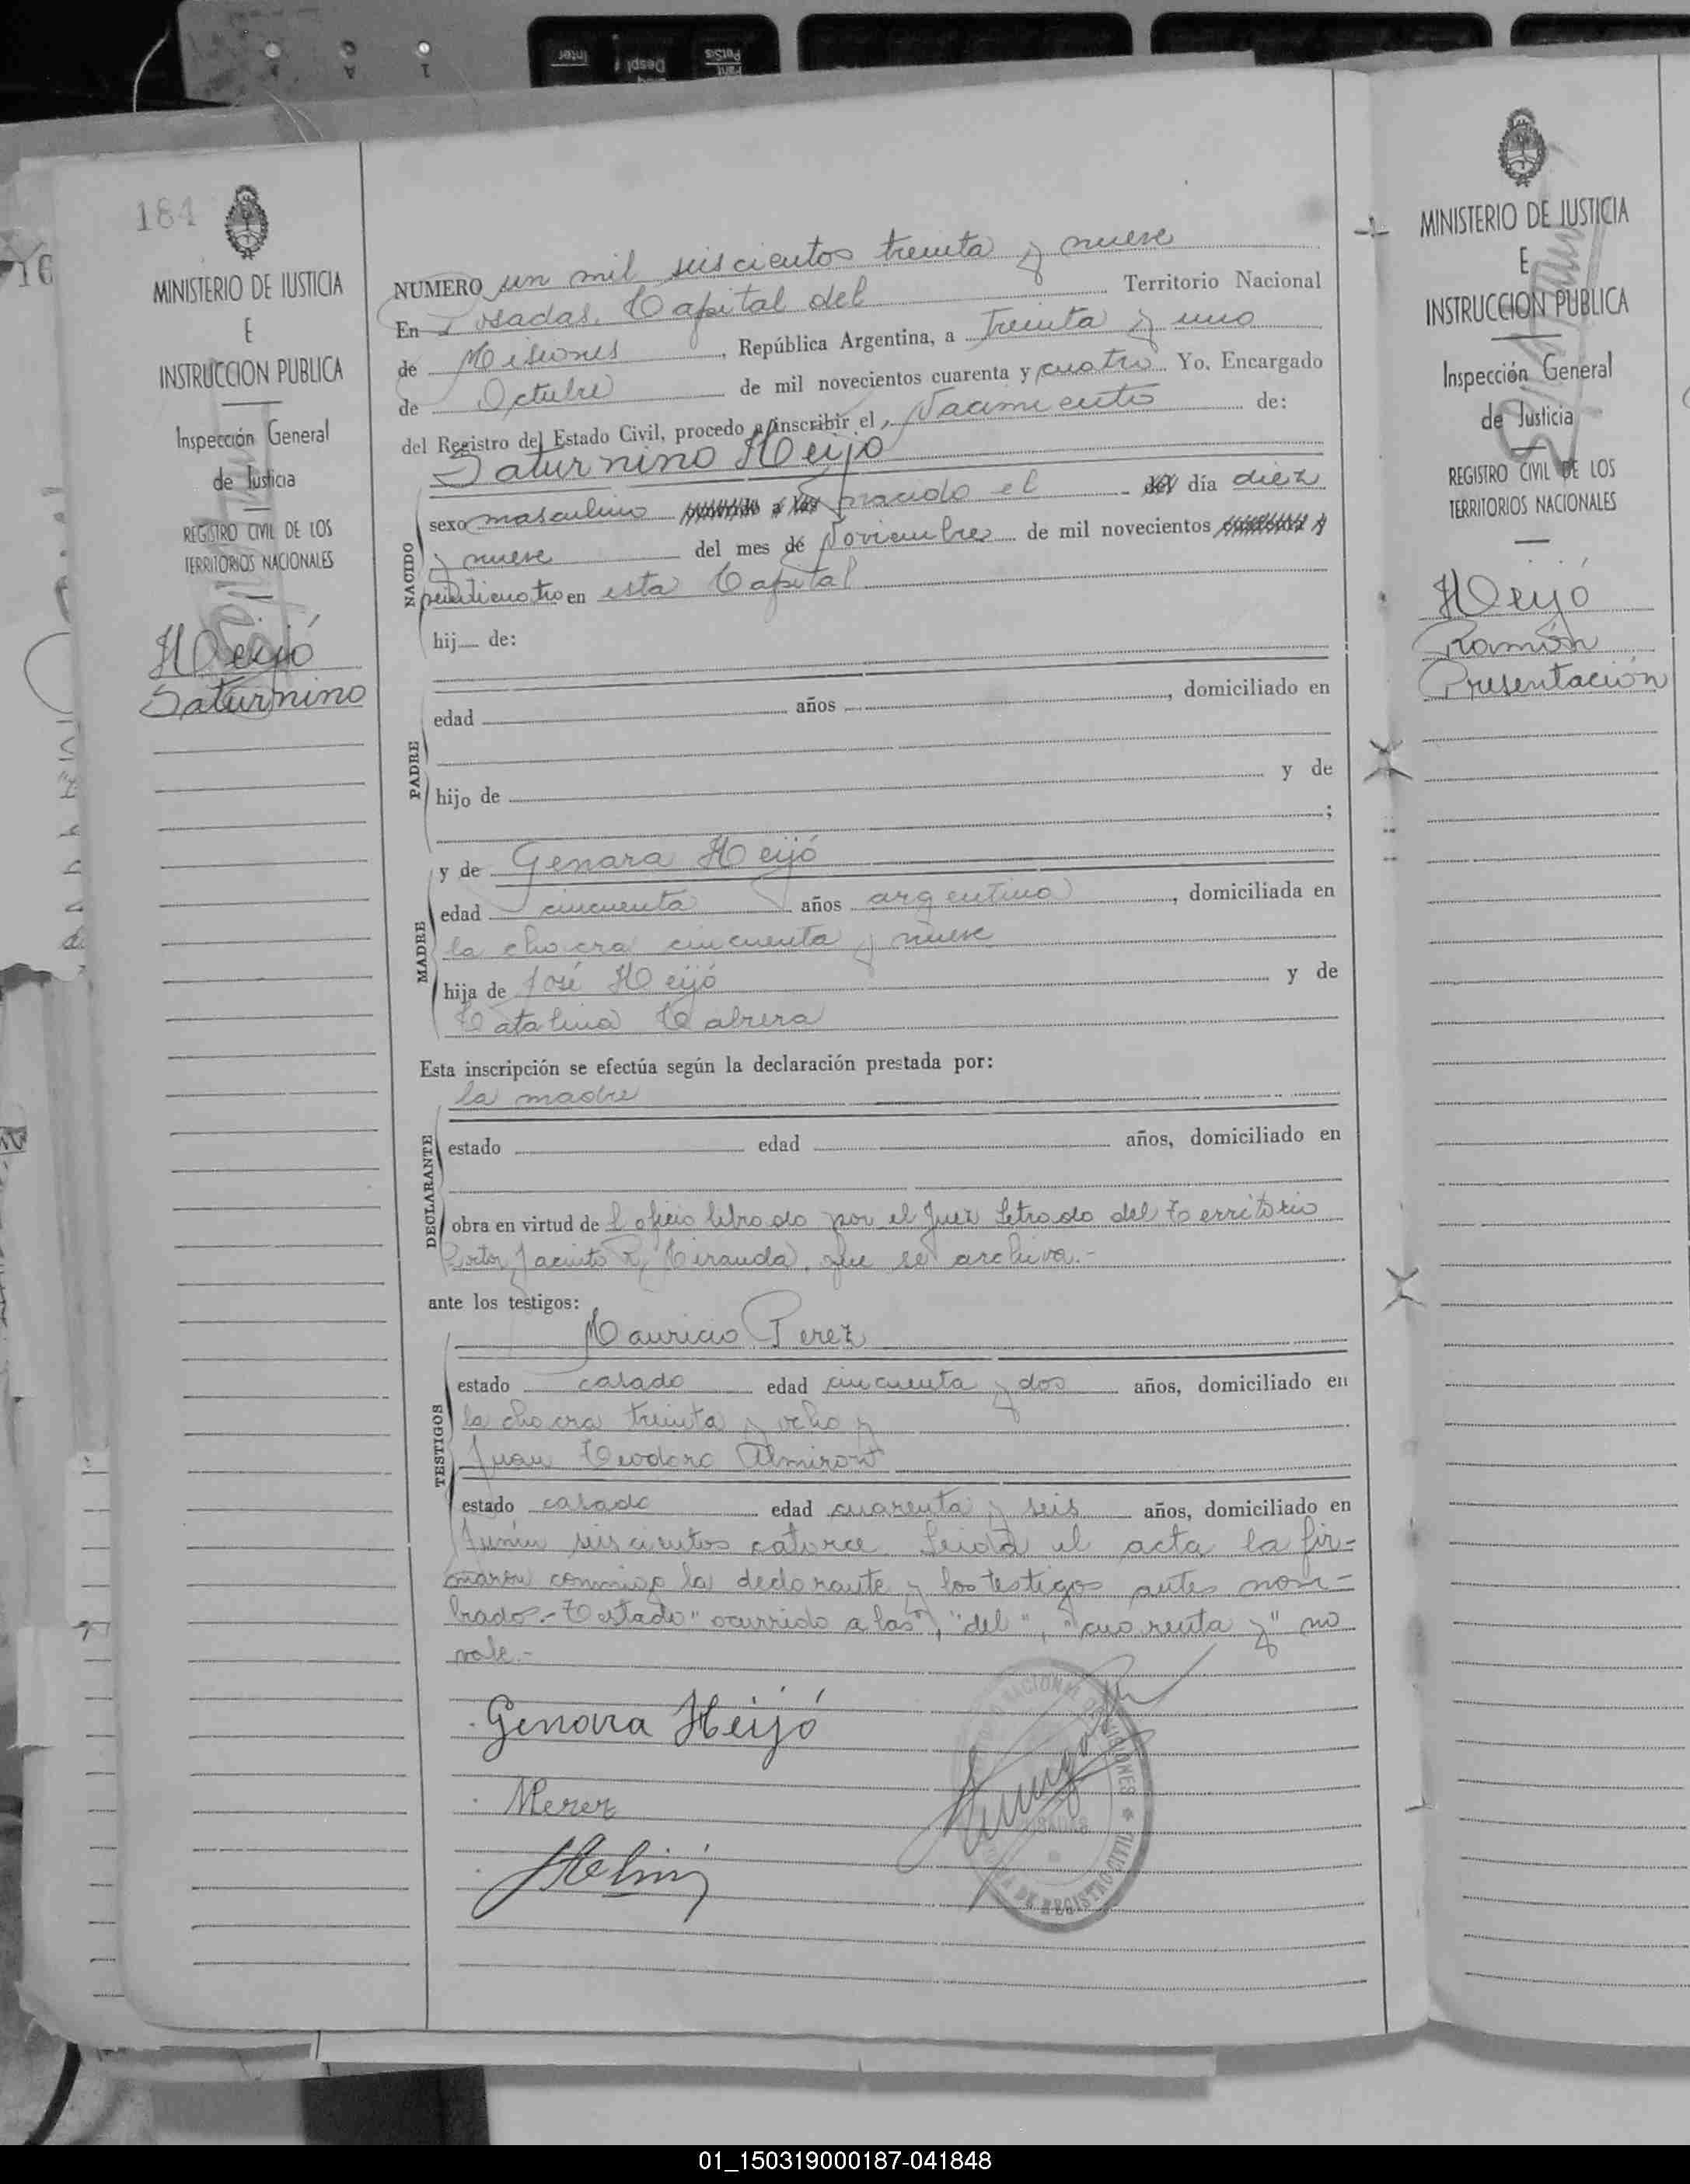 184
MINISTERIO DE JUSTICIA
E
INSTRUCCION PUBLICA
Inspección General
de Justicia
REGISTRO CIVIL DE LOS
TERRITORIOS NACIONALES
Heijó
Saturnino
NUMERO un mil seiscientos treinta y nueve
En Posadas, Capital del Territorio Nacional
de Misiones, República Argentina, a Treinta y uno
de Octubre de mil novecientos cuarenta y cuatro Yo, Encargado
del Registro del Estado Civil, procedo a inscribir el Nacimiento de:
Saturnino Heijó
sexo masculino ocurrido a las nacido el del día diez
y nueve del mes de Noviembre de mil novecientos cuarenta y
veinticuatro en esta Capital
NACIDO
hij de:
edad años , domiciliado en
PADRE
hijo de y de
;
y de Genara Heijó
edad cincuenta años argentina, domiciliada en
la chacra cincuenta y nueve
MADRE
hija de José Heijó y de
Catalina Cabrera
Esta inscripción se efectúa según la declaración prestada por:
la madre
estado edad años, domiciliado en
DECLARANTE
obra en virtud de l oficio librado por el Juez Letrado del Territorio
Doctor Jacinto R. Miranda, que se archiva.-
ante los testigos:
Mauricio Perez
estado casado edad cincuenta y dos años, domiciliado en
la chacra treinta y ocho y
TESTIGOS
Juan Teodoro Almiron
estado casado edad cuarenta y seis años, domiciliado en
Junín seiscientos catorce. Leida el acta la fir-
maron conmigo la declarante y los testigos antes nom-
brado.- Testado "ocurrido a las", "del", "cuarenta y" no
vale.-
Genara Heijó
MPerez
DE REGISTRO CIVIL
MINISTERIO DE JUSTICIA
E
INSTRUCCION PUBLICA
Inspección General
de Justicia
REGISTRO CIVIL DE LOS
TERRITORIOS NACIONALES
Heijó
Ramón
Presentación
01_150319000187-041848